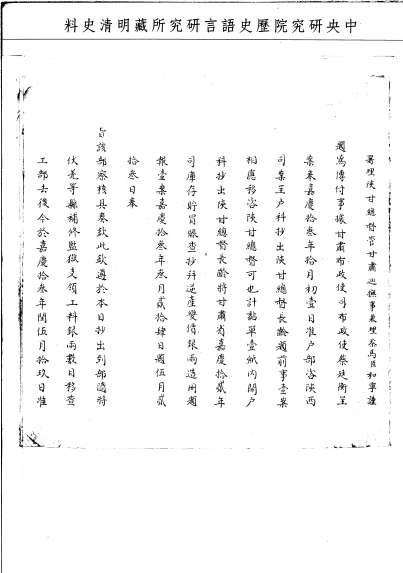 中央研究院歷史語言研究所藏明清史料
署理陝甘總督管甘肅巡撫事兼理茶馬臣和寧謹
題為傳付事據甘肅布政使司布政使蔡廷衡呈
案奉嘉慶拾叁年拾月初壹日准户部咨陝西
司案呈户科抄出陝甘總督長齡題前事壹案
相應移咨陝甘總督可也計黏單壹紙內開户
科抄出陝甘總督長齡將甘肅省嘉慶拾貳年
司庫存貯冒賑查抄並逆產變價銀兩造冊題
報壹案嘉慶拾叁年叁月貳拾肆日題伍月貳
拾叁日奉
旨該部察核具奏欽此欽遵於本日抄出到部隨將
伏羌等縣補修監獄支領工料銀兩數目移查
工部去後今於嘉慶拾叁年閏伍月拾玖日准